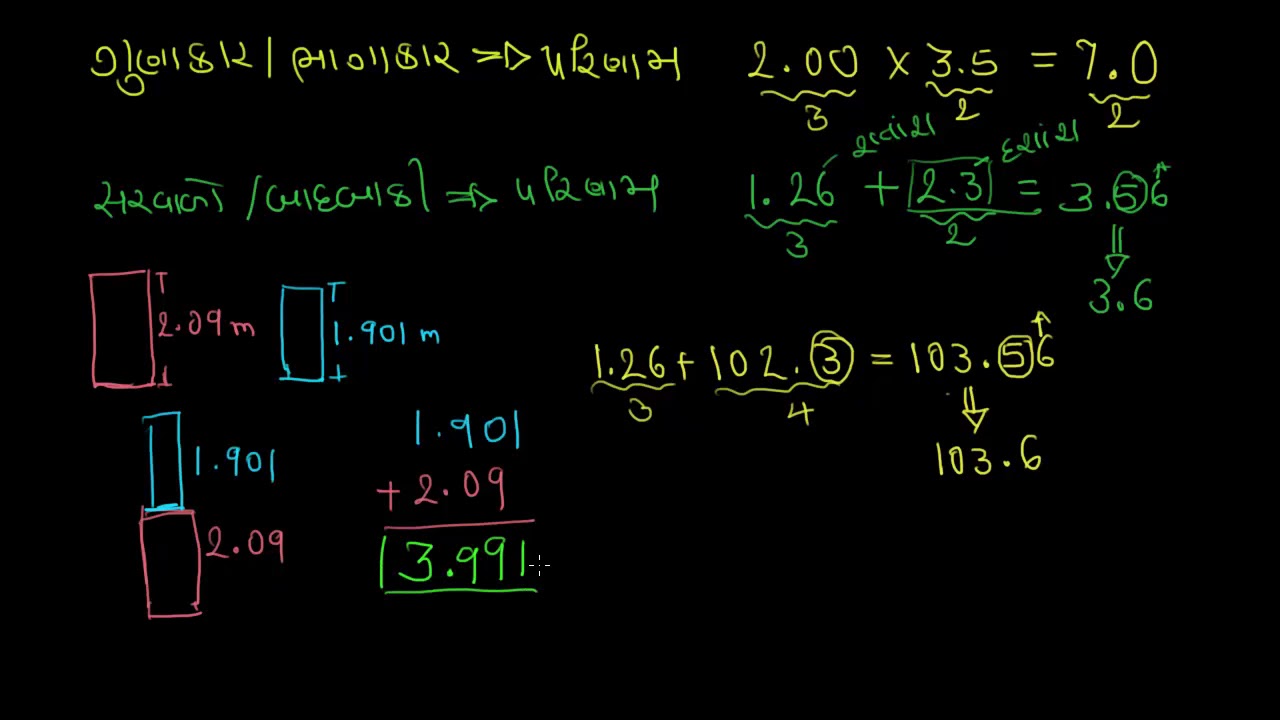 ગુણાકાર / ભાગાકાર ⇒ પરિણામ
2.00 × 3.5 = 7.0
3 2 2
શતાંશ દશાંશ
સરવાળો / બાદબાકી ⇒ પરિણામ
1.26 + 2.3 = 3.56
3 2
3.6
2.09 m
1.901 m
1.26 + 102.3 = 103.56
3 4
103.6
1.901
2.09
1.901
+ 2.09
3.991